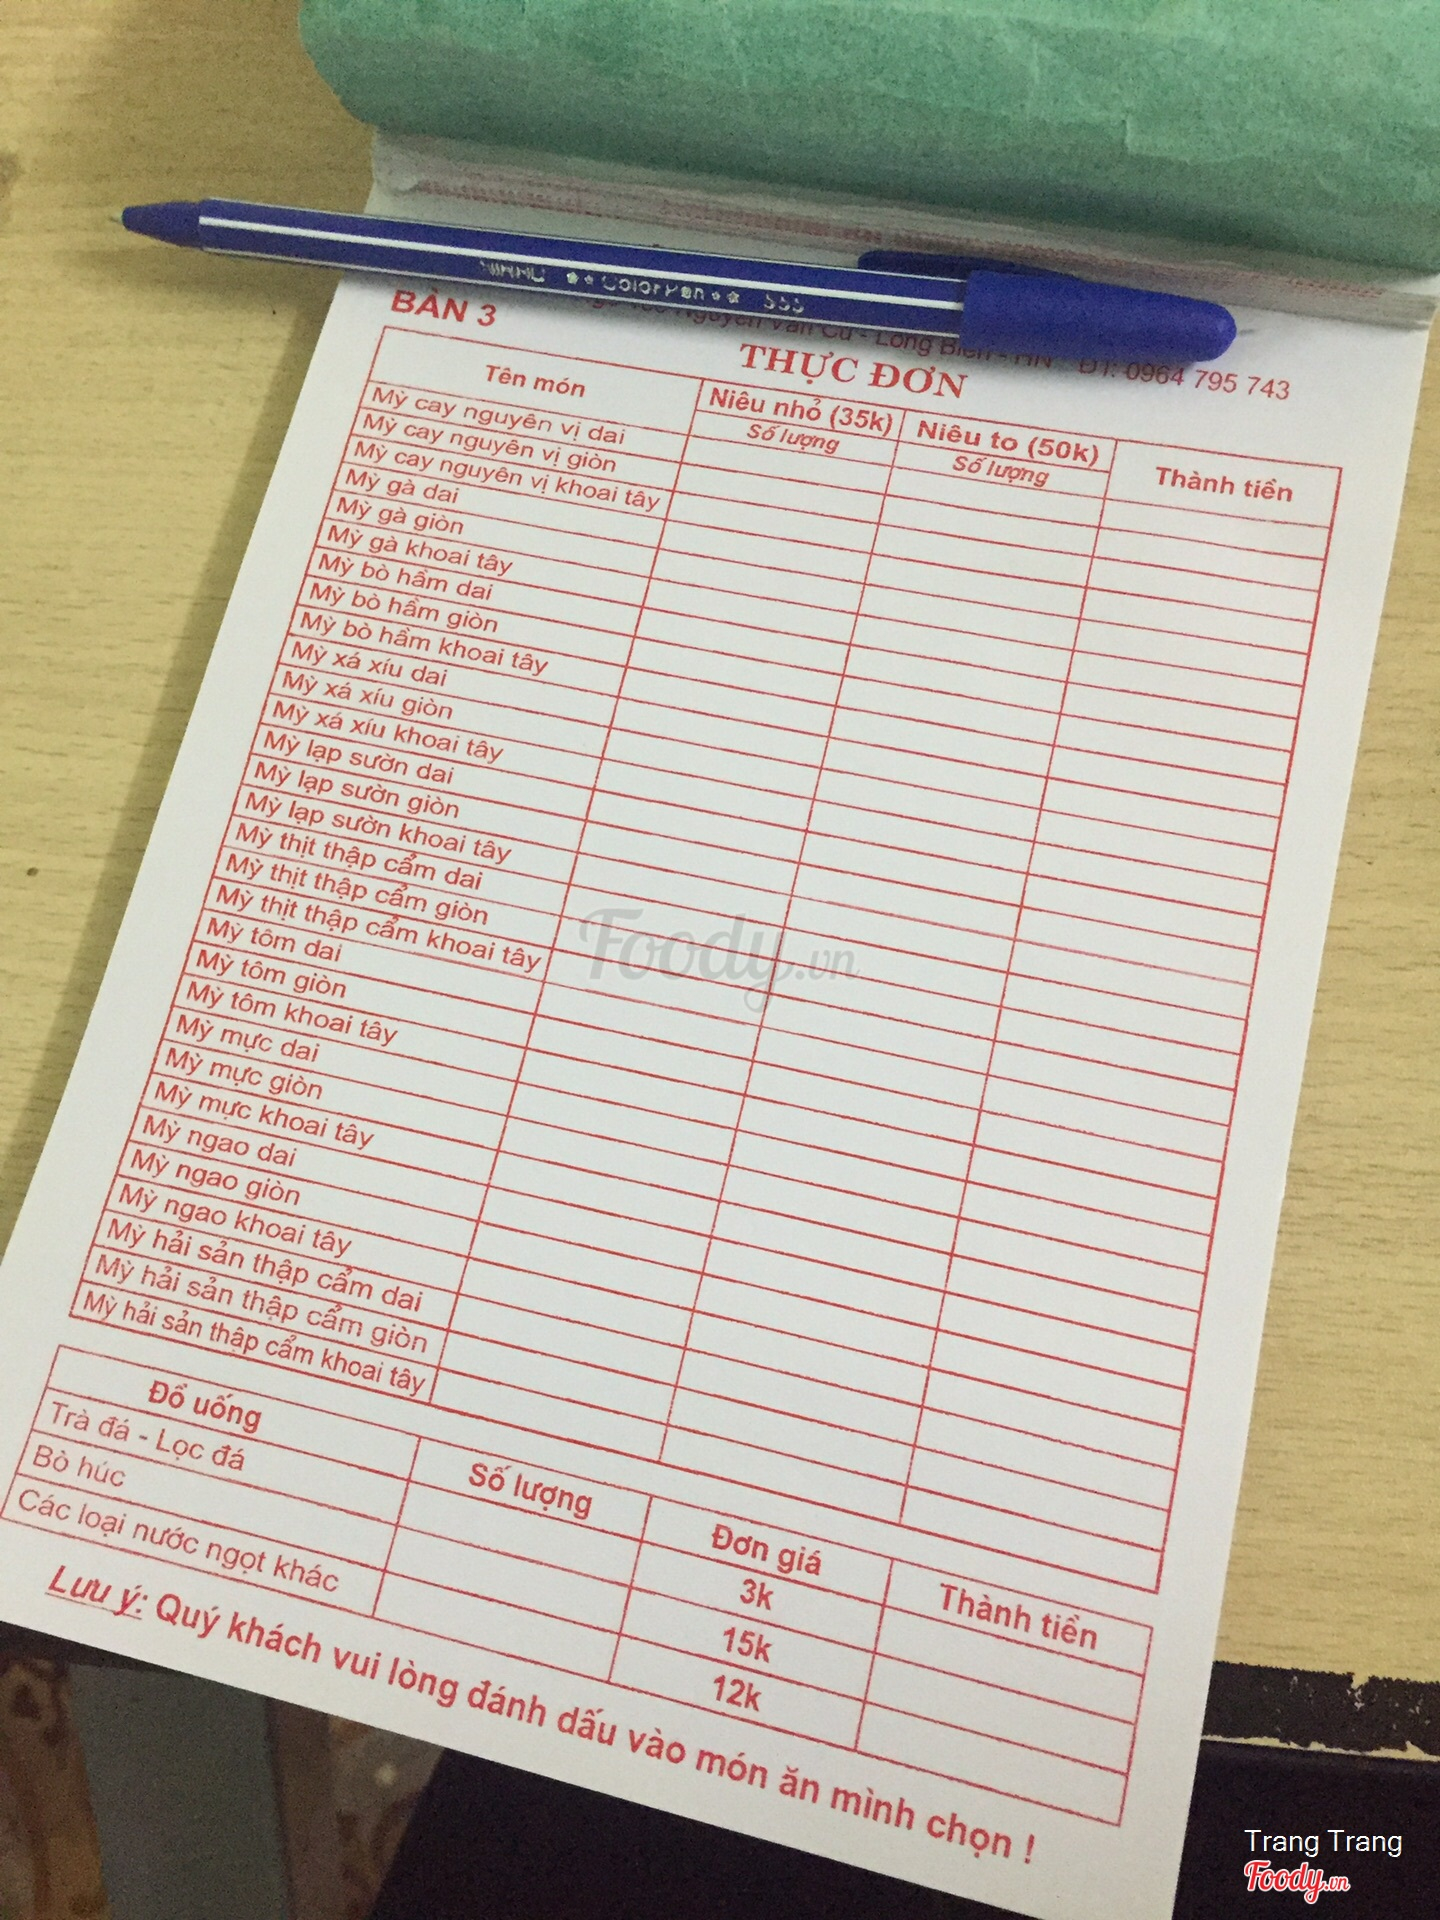 Color Pen 555
BÀN 3
Nguyễn Văn Cừ - Long Biên - HN - ĐT: 0964 795 743
THỰC ĐƠN
Tên món
Niêu nhỏ (35k)
Niêu to (50k)
Thành tiền
Số lượng
Số lượng
Mỳ cay nguyên vị dai
Mỳ cay nguyên vị giòn
Mỳ cay nguyên vị khoai tây
Mỳ gà dai
Mỳ gà giòn
Mỳ gà khoai tây
Mỳ bò hầm dai
Mỳ bò hầm giòn
Mỳ bò hầm khoai tây
Mỳ xá xíu dai
Mỳ xá xíu giòn
Mỳ xá xíu khoai tây
Mỳ lạp sườn dai
Mỳ lạp sườn giòn
Mỳ lạp sườn khoai tây
Mỳ thịt thập cẩm dai
Mỳ thịt thập cẩm giòn
Mỳ thịt thập cẩm khoai tây
Mỳ tôm dai
Mỳ tôm giòn
Mỳ tôm khoai tây
Mỳ mực dai
Mỳ mực giòn
Mỳ mực khoai tây
Mỳ ngao dai
Mỳ ngao giòn
Mỳ ngao khoai tây
Mỳ hải sản thập cẩm dai
Mỳ hải sản thập cẩm giòn
Mỳ hải sản thập cẩm khoai tây
Đồ uống
Số lượng
Đơn giá
Thành tiền
Trà đá - Lọc đá
3k
Bò húc
15k
Các loại nước ngọt khác
12k
Lưu ý: Quý khách vui lòng đánh dấu vào món ăn mình chọn !
Foody.vn
Trang Trang
Foody.vn